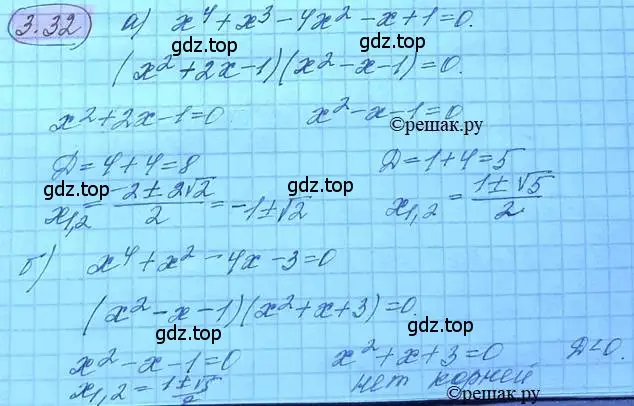 3.32 а) x⁴+x³-4x²-x+1=0.
gdz.top gdz.top
(x²+2x-1)(x²-x-1)=0.
gdz.top
x²+2x-1=0 x²-x-1=0
©решак.ру
Д=4+4=8 Д=1+4=5
gdz.top gdz.top gdz.top
x₁,₂ = (-2±2√2)/2 = -1±√2 x₁,₂ = (1±√5)/2
б) x⁴+x²-4x-3=0
gdz.top
(x²-x-1)(x²+x+3)=0.
gdz.top gdz.top
x²-x-1=0 x²+x+3=0 Д<0.
x₁,₂ = (1±√5)/2 нет корней
©решак.ру